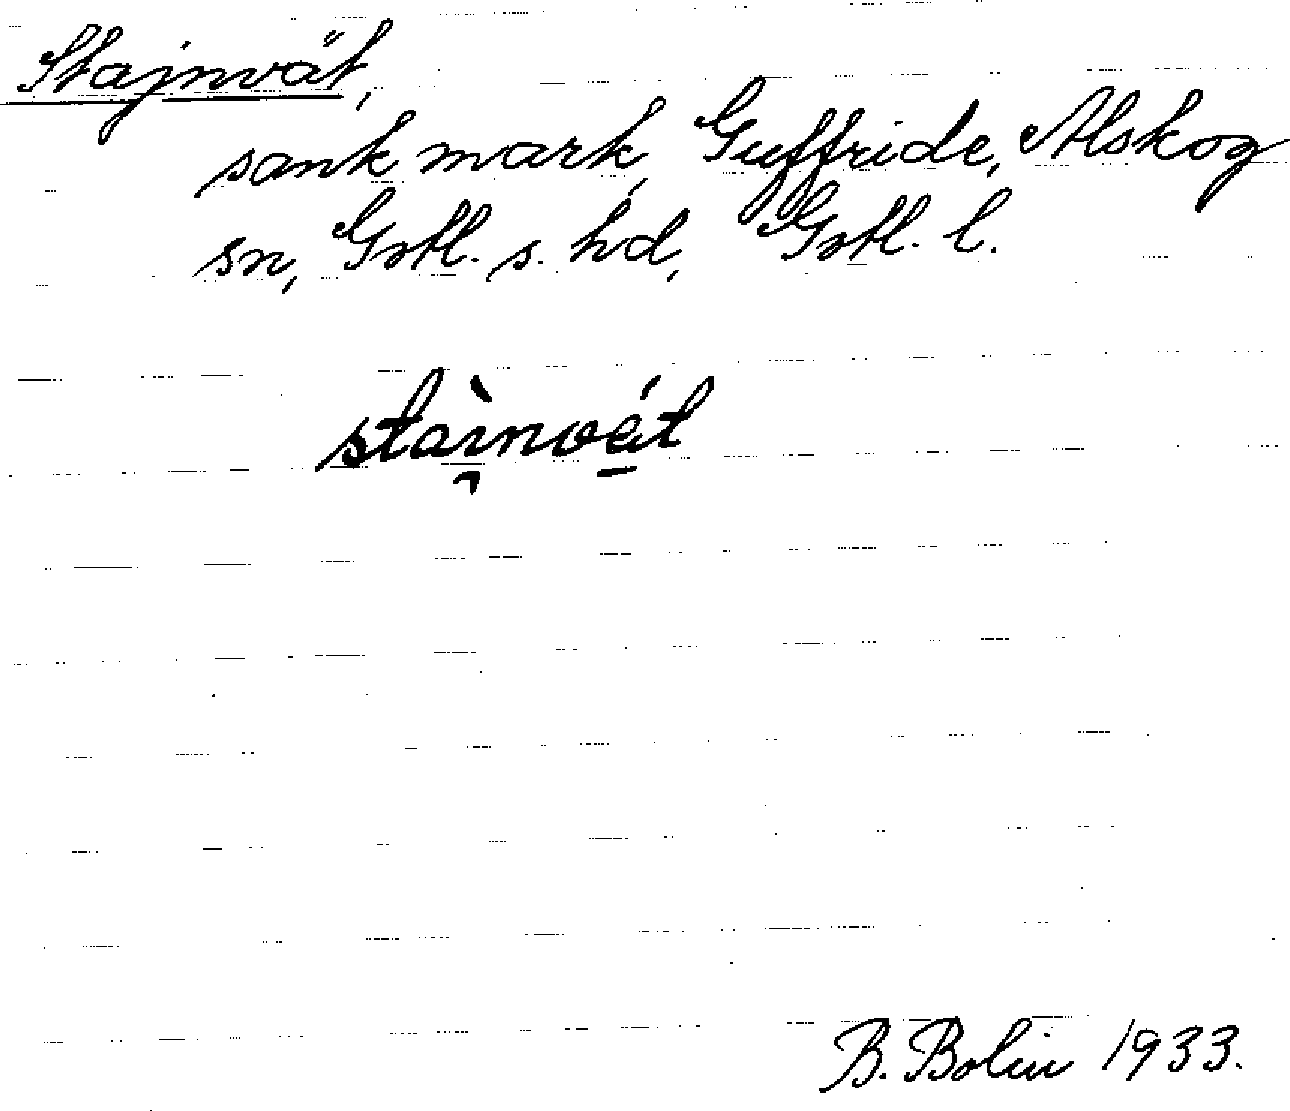 Stajnvät,
sank mark, Guffride, Alskog
sn, Gotl. s. hd, Gotl. l.
stai̯nvät
B. Bolin 1933.